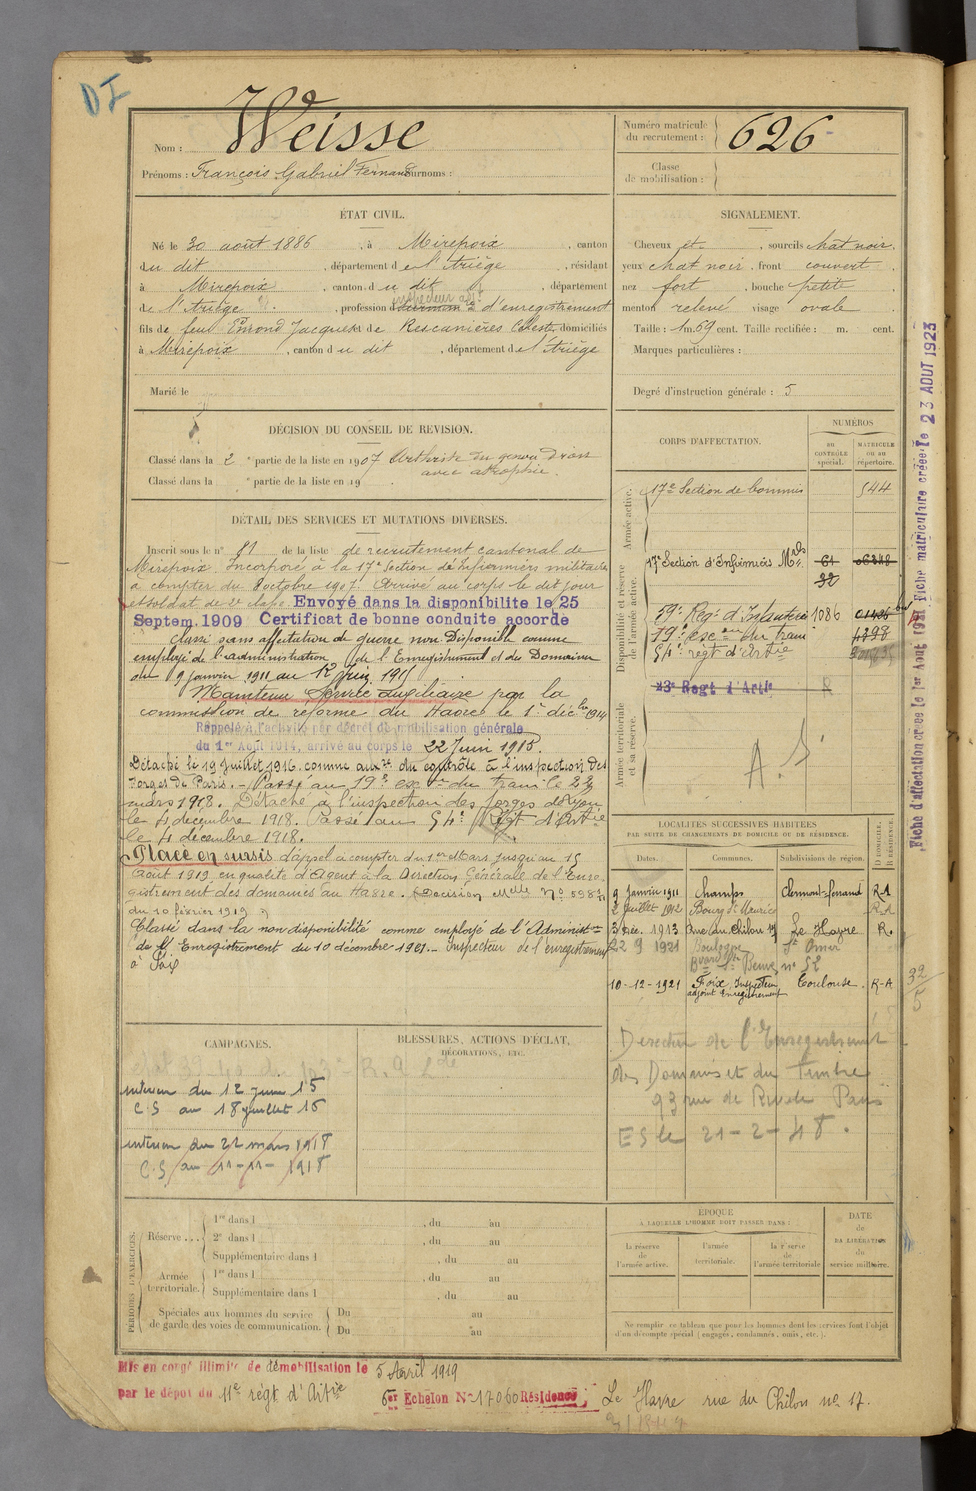 DI
Nom : Weisse
Prénoms : François Gabriel Fernand Surnoms :
Numéro matricule du recrutement : 626
Classe de mobilisation :
ÉTAT CIVIL.
Né le 30 août 1886, à Mirepoix, canton
du dit, département de l'Ariège, résidant
à Mirepoix, canton du dit, département
de l'Ariège, profession d'enregistrement
fils de feu Jacques et de Rescanières Céleste domiciliés
à Mirepoix, canton du dit, département de l'Ariège
Marié le
SIGNALEMENT.
Cheveux et, sourcils chat noir.
yeux chat noir, front couvert
nez fort, bouche petite
menton relevé visage ovale
Taille : 1m. 59 cent. Taille rectifiée : m. cent.
Marques particulières :
Degré d'instruction générale : 5
DÉCISION DU CONSEIL DE REVISION.
Classé dans la 2e partie de la liste en 1907 Arthrite du genou droit
avec atrophie.
Classé dans la e partie de la liste en 19
DÉTAIL DES SERVICES ET MUTATIONS DIVERSES.
Inscrit sous le n° 81 de la liste de recrutement cantonal de
Mirepoix. Incorporé à la 17e Section de Infirmiers militaires
à compter du 8 octobre 1907. Arrivé au corps le dit jour
et soldat de 2e classe. Envoyé dans la disponibilite le 25
Septem. 1909 Certificat de bonne conduite accorde
Classé sans affectation de guerre non Disponible comme
employé de l'administration de l'Enregistrement et des Domaines
du 9 janvier 1911 au 12 Juin 1915
Maintenu Service auxiliaire par la
commission de réforme du Havre le 1er décbre 1914
Rappelé à l'activité par décret de mobilisation générale
du 1er Août 1914, arrivé au corps le 22 Juin 1915.
Détaché le 19 Juillet 1916 comme auxre du contrôle à l'inspection des
Forges de Paris. - Passé au 19e escon du train le 22
mars 1918. Détaché à l'inspection des forges de Lyon
le 4 décembre 1918. Passé au 54e Régt d'Artie
le 4 décembre 1918.
Placé en sursis d'appel à compter du 1er Mars jusqu'au 15
Août 1919 en qualité d'Agent à la Direction Générale de l'Enre-
gistrement des domaines au Havre. (Décision Melle N°
du 10 février 1919
Classé dans la non disponibilité comme employé de l'Administon
de l'Enregistrement du 10 décembre 1921. - Inspecteur de l'enregistrement
à Foix
CORPS D'AFFECTATION.
NUMÉROS
AU CONTRÔLE spécial.
MATRICULE ou au répertoire.
Armée active.
17e Section de Commis 544
Disponibilité et réserve de l'armée active.
17e Section d'Infirmiers Mres 61 06248
32
59e Regt d'Infanterie 1086
19e escon du train 4898
54e régt d'Artie
Armée territoriale et sa réserve.
A. S
LOCALITÉS SUCCESSIVES HABITÉES
PAR SUITE DE CHANGEMENTS DE DOMICILE OU DE RÉSIDENCE.
Dates. Communes. Subdivisions de région. D DOMICILE. R RÉSIDENCE.
9 Janvier 1911 Champs Clermont-ferrand R.A
2 Juillet 1912 Bourg St Maurice R.A
3 Déc. 1913 Rue du Chilon 17 Le Havre R.
22 9 1921 Boulogne St Omer
Bvard Ste Beuve, n° 52
10-12-1921 Foix, Inspecteur adjoint Enregistrement Toulouse. R-A
Directeur de l'Enregistrement
des Domaines et du Timbre
93 rue de Rivoli Paris
ES le 21-2-48.
32/5
CAMPAGNES.
Intérieur du 12 Juin 15
C.S au 18 juillet 16
intérieur du 22 mars 1918
C.S au 11-11-1918
BLESSURES, ACTIONS D'ÉCLAT,
DÉCORATIONS, ETC.
PÉRIODES D'EXERCICES.
Réserve...
1re dans l , du au
2e dans l , du au
Supplémentaire dans l , du au
Armée territoriale.
1re dans l , du au
Supplémentaire dans l , du au
Spéciales aux hommes du service de garde des voies de communication.
Du au
Du au
ÉPOQUE
À LAQUELLE L'HOMME DOIT PASSER DANS :
la réserve de l'armée active.
l'armée territoriale.
la réserve de l'armée territoriale
DATE de LA LIBÉRATION du service militaire.
Ne remplir ce tableau que pour les hommes dont les services font l'objet
d'un décompte spécial (engagés, condamnés, omis, etc.).
Mis en congé illimité de démobilisation le 5 Avril 1919
par le dépôt du 11e régt d'Artie 6er Echelon N° 17060 Résidence : Le Havre rue du Chilon no 17.
Fiche d'affectation créée le 1er Août 1921 Fiche matriculaire créée le 23 AOUT 1923